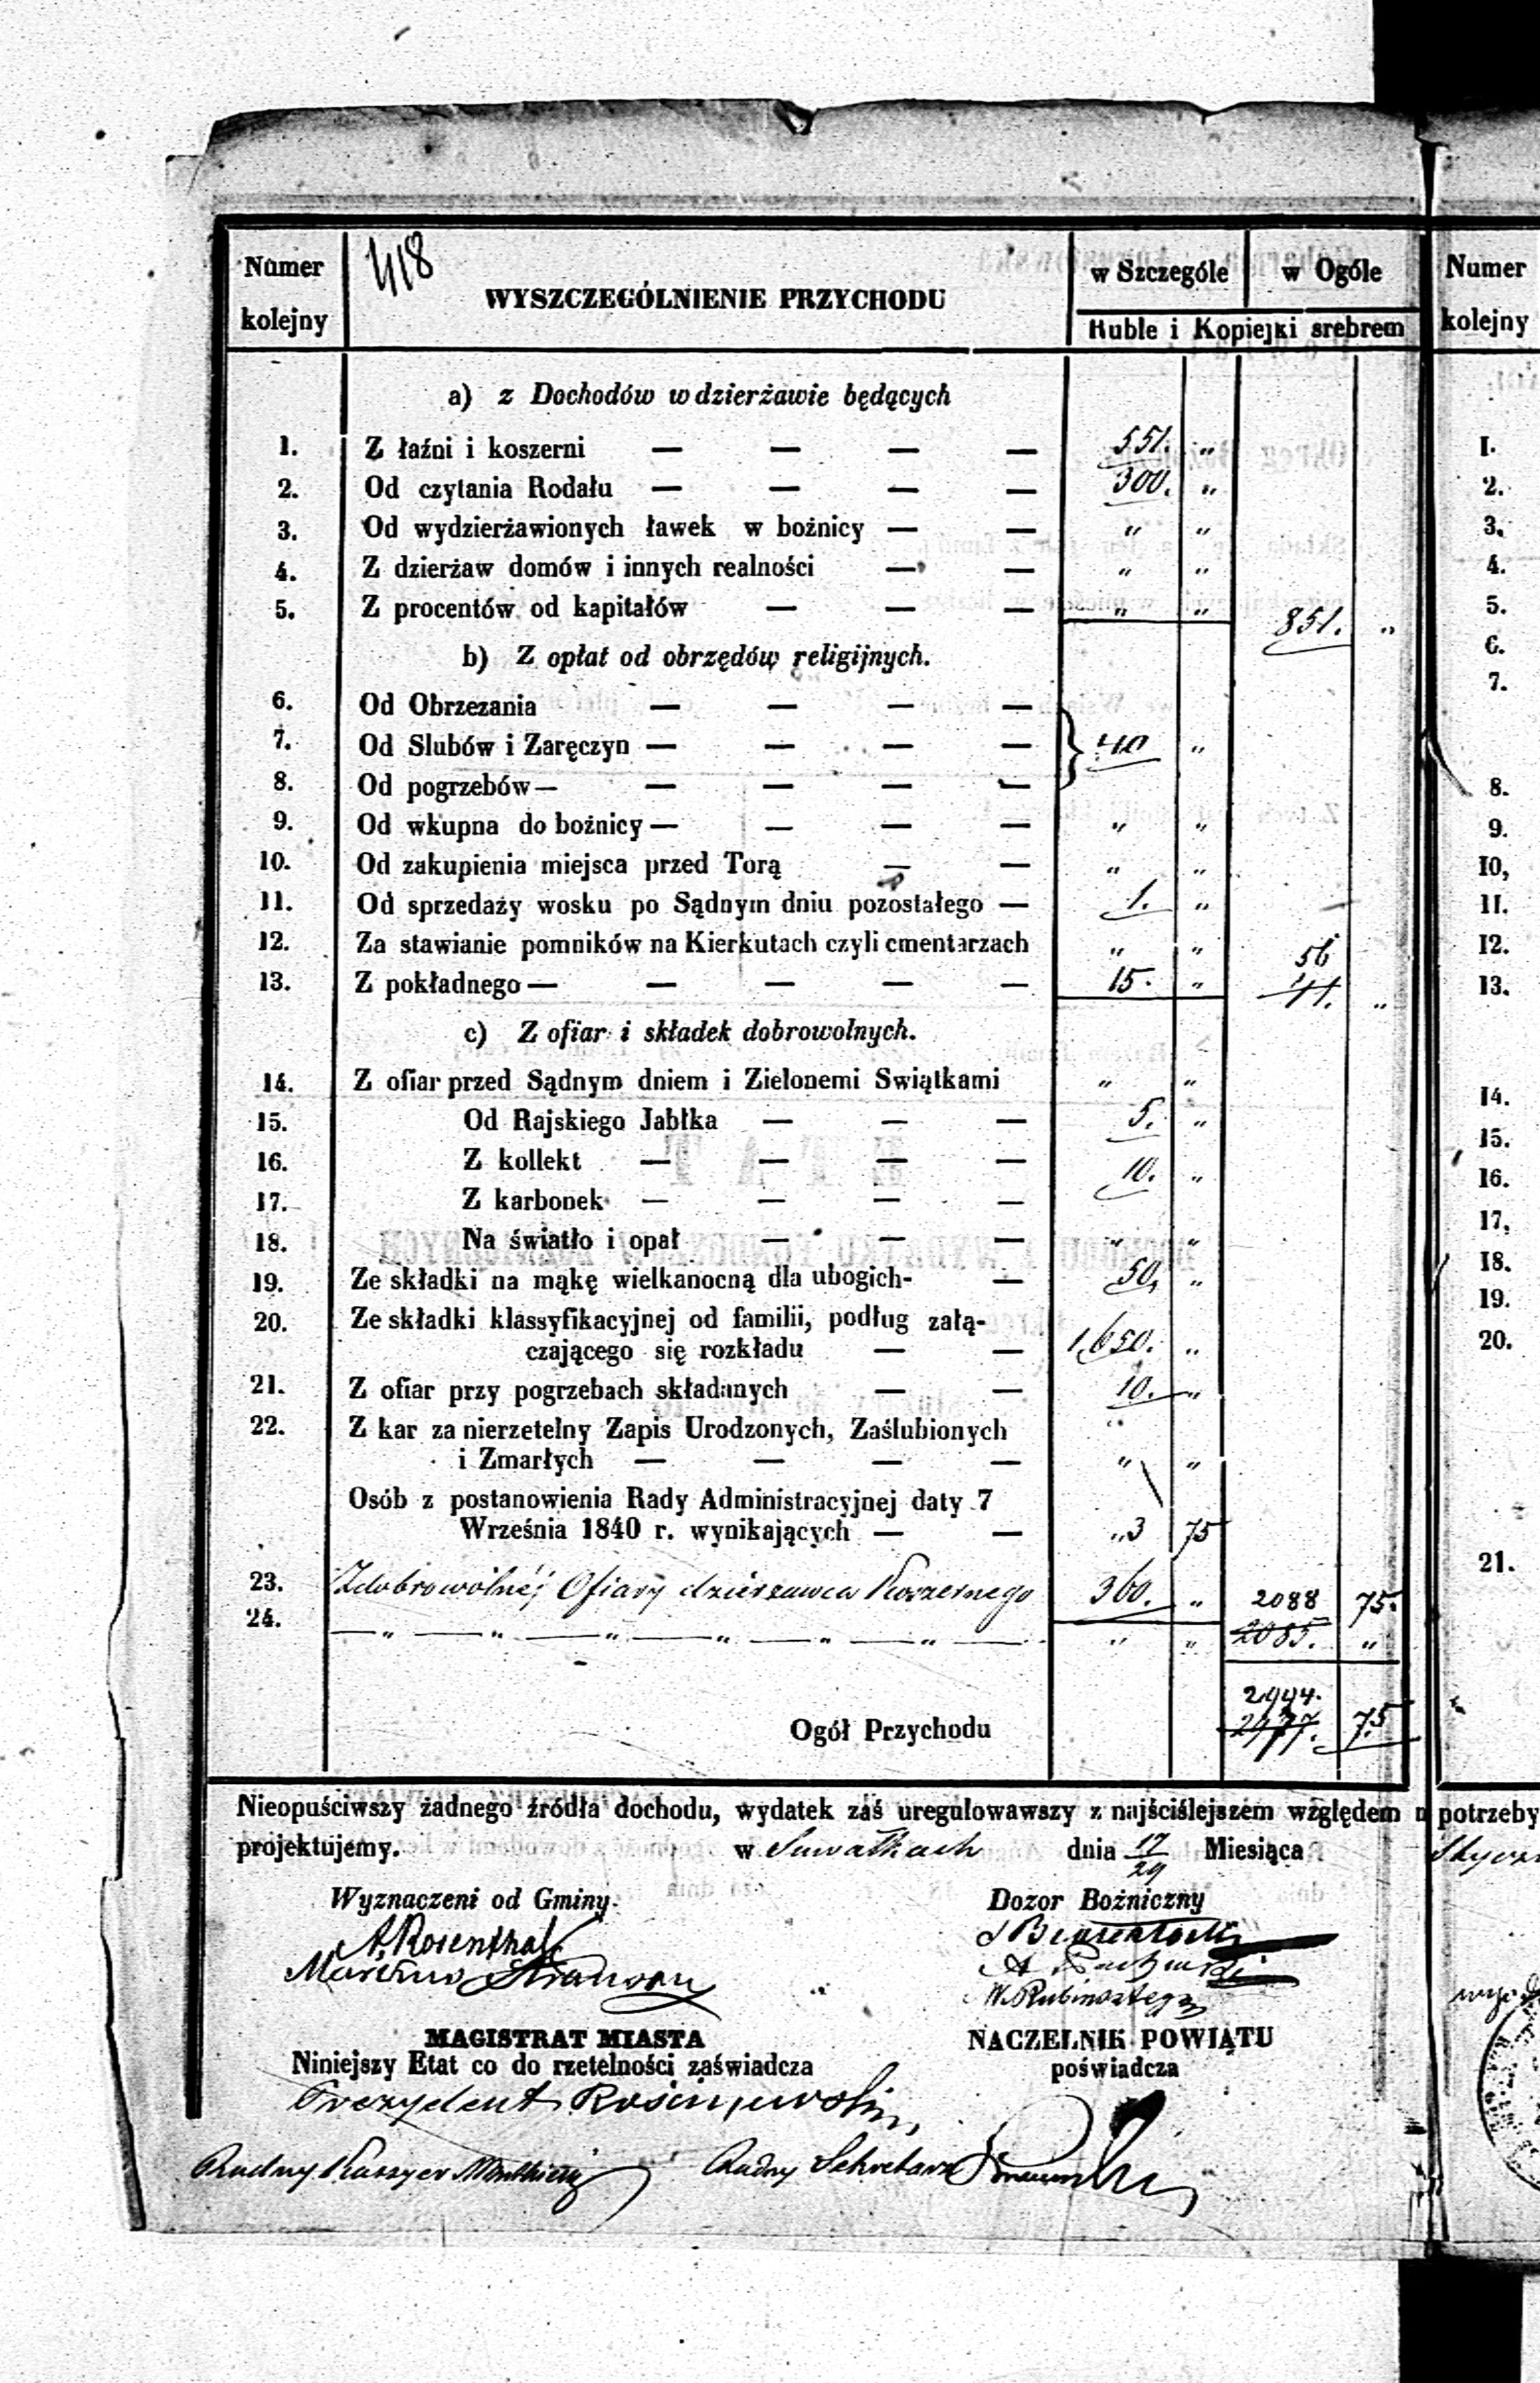 418
Numer kolejny
WYSZCZEGÓLNIENIE PRZYCHODU
w Szczególe
w Ogóle
Ruble i Kopiejki srebrem
a) z Dochodów w dzierżawie będących
1. Z łaźni i koszerni — — — — 551. „
2. Od czytania Rodału — — — — 300. „
3. Od wydzierżawionych ławek w bożnicy — — „ „
4. Z dzierżaw domów i innych realności — — „ „
5. Z procentów od kapitałów — — — „ „ 851. „
b) Z opłat od obrzędów religijnych.
6. Od Obrzezania — — — —
7. Od Slubów i Zaręczyn — — — — } 40 „
8. Od pogrzebów — — — — —
9. Od wkupna do bożnicy — — — — „ „
10. Od zakupienia miejsca przed Torą — — „ „
11. Od sprzedaży wosku po Sądnym dniu pozostałego — 1. „
12. Za stawianie pomników na Kierkutach czyli cmentarzach „ „ 56
13. Z pokładnego — — — — — 15. „ 41. „
c) Z ofiar i składek dobrowolnych.
14. Z ofiar przed Sądnym dniem i Zielonemi Swiątkami „ „
15. Od Rajskiego Jabłka — — — 5. „
16. Z kollekt — — — — 10. „
17. Z karbonek — — — —
18. Na światło i opał — — — „ „
19. Ze składki na mąkę wielkanocną dla ubogich- — 50, „
20. Ze składki klassyfikacyjnej od familii, podług załą-
czającego się rozkładu — — 1,650. „
21. Z ofiar przy pogrzebach składanych — — 10. „
22. Z kar za nierzetelny Zapis Urodzonych, Zaślubionych „
i Zmarłych — — — — „ „
Osób z postanowienia Rady Administracyjnej daty 7
Września 1840 r. wynikających — — „3 75
23. Z dobrowolnéj Ofiary dzierżawca Koszernego 360. „ 2088 75.
24. — „ — „ — „ — „ — „ — „ — „ „ 2085. „
2994.
Ogół Przychodu 2977. 75
Nieopuściwszy żadnego źródła dochodu, wydatek zaś uregulowawszy z najściślejszem względem n potrzeby
projektujemy. w Suwałkach dnia 17/29 Miesiąca
Wyznaczeni od Gminy.
Dozor Bożniczny
A. Rosenthal
W. Rubinsztejn
MAGISTRAT MIASTA
NACZELNIK POWIATU
Niniejszy Etat co do rzetelności zaświadcza
poświadcza
Prezydent
Radny Kassyer
Radny Sekretarz
Numer kolejny
1.
2.
3.
4.
5.
6.
7.
8.
9.
10,
11.
12.
13.
14.
15.
16.
17,
18.
19.
20.
21.